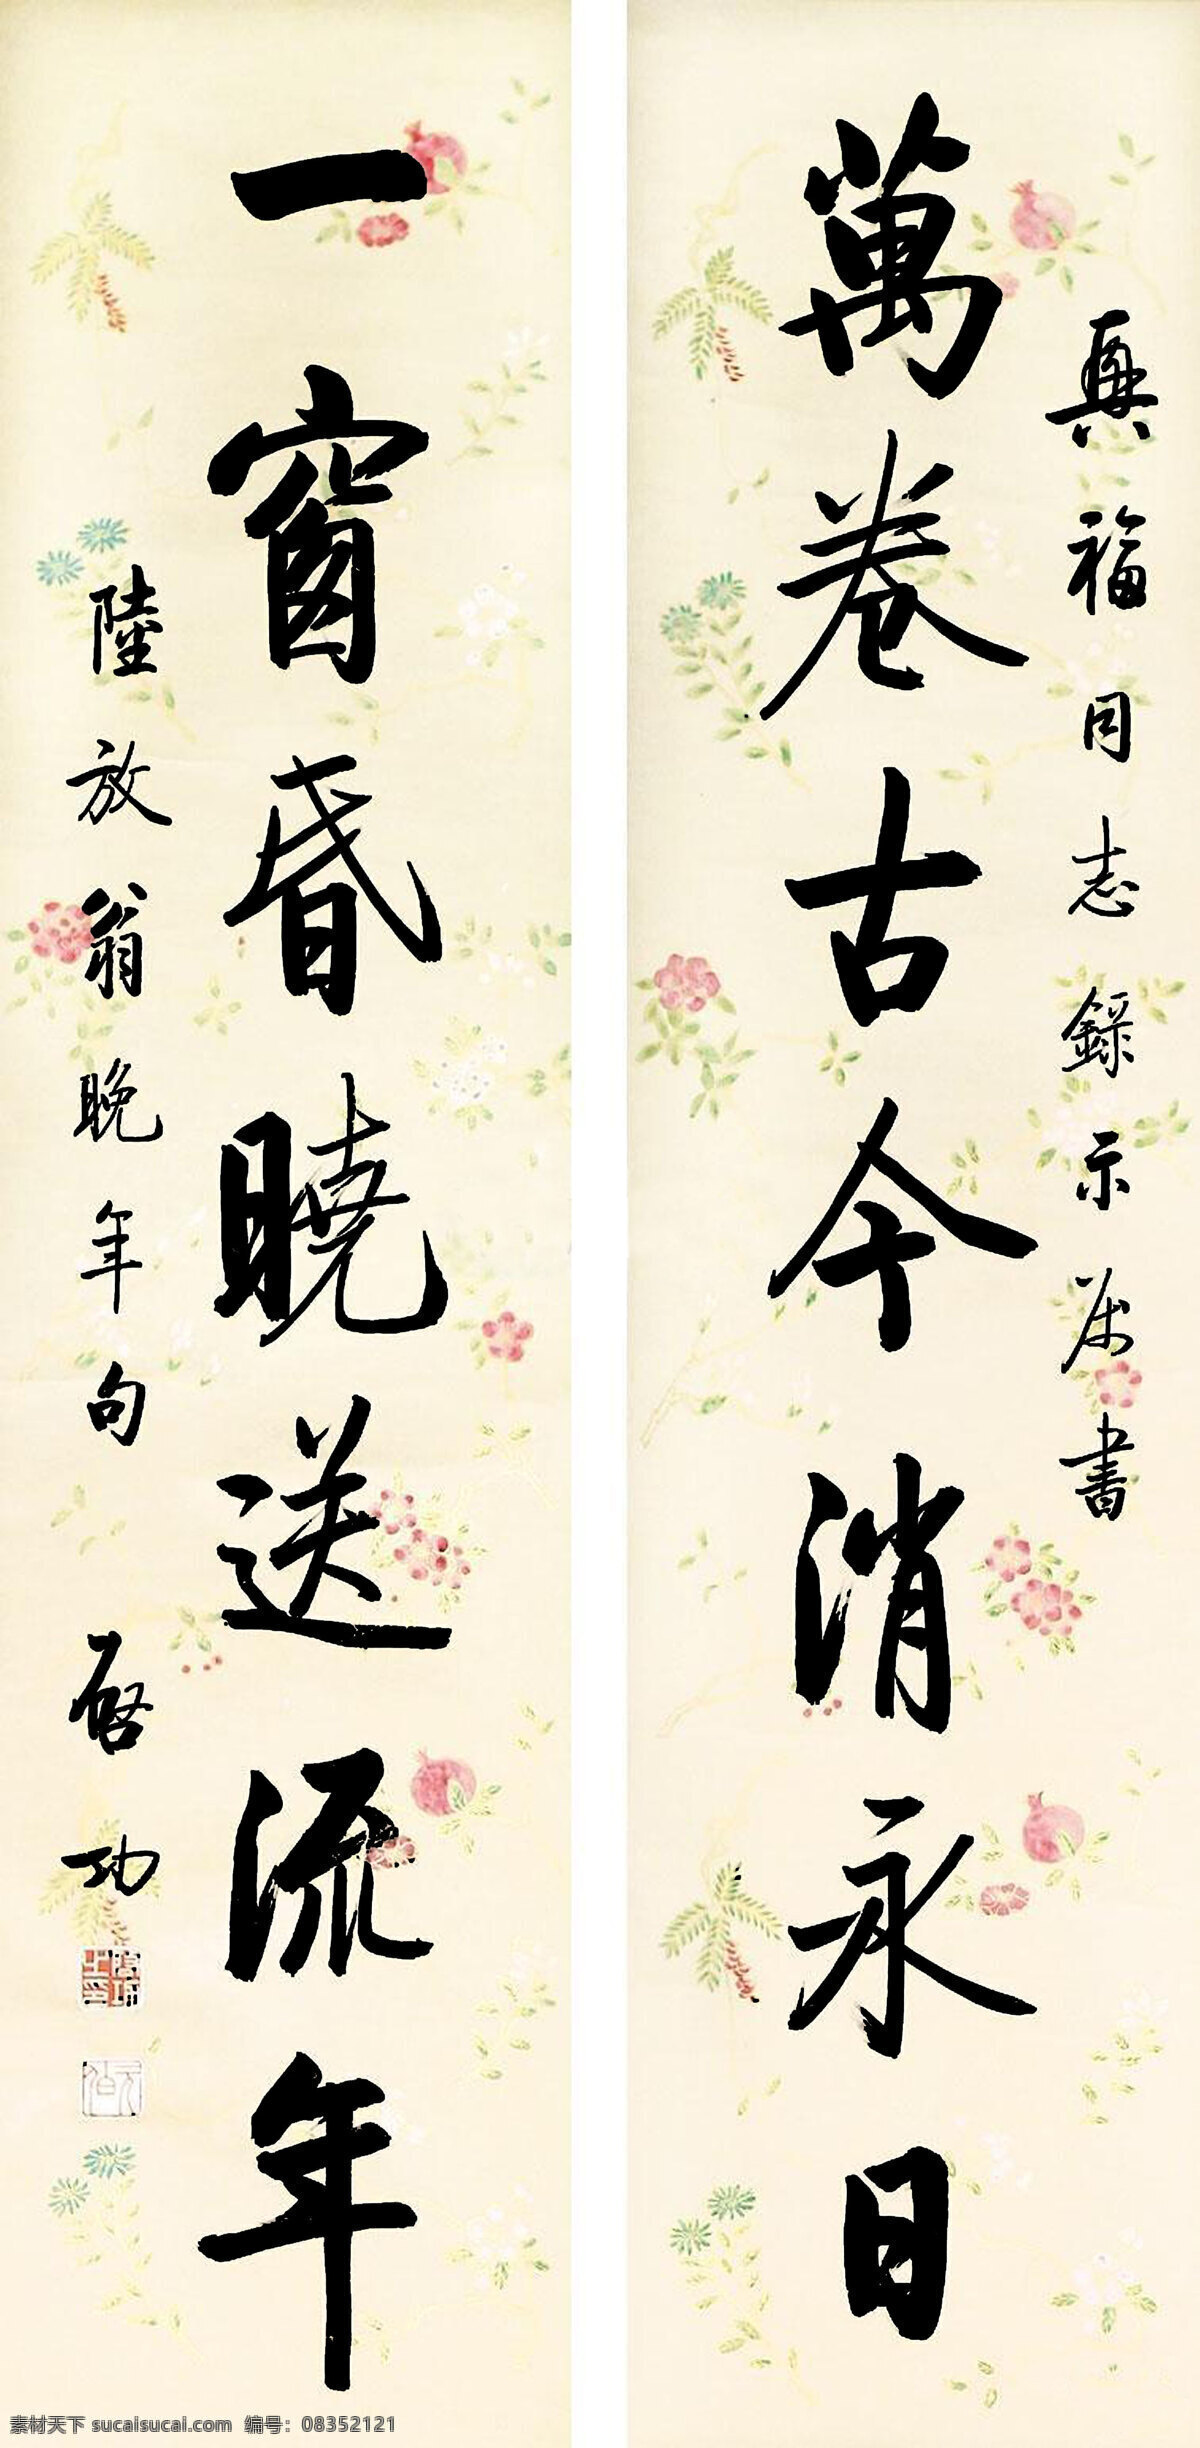 興福同志錄示属書
萬卷古今消永日
一窗昏曉送流年
陸放翁晚年句 啟功
元白
素材天下 sucaisucai.com 编号：08352121